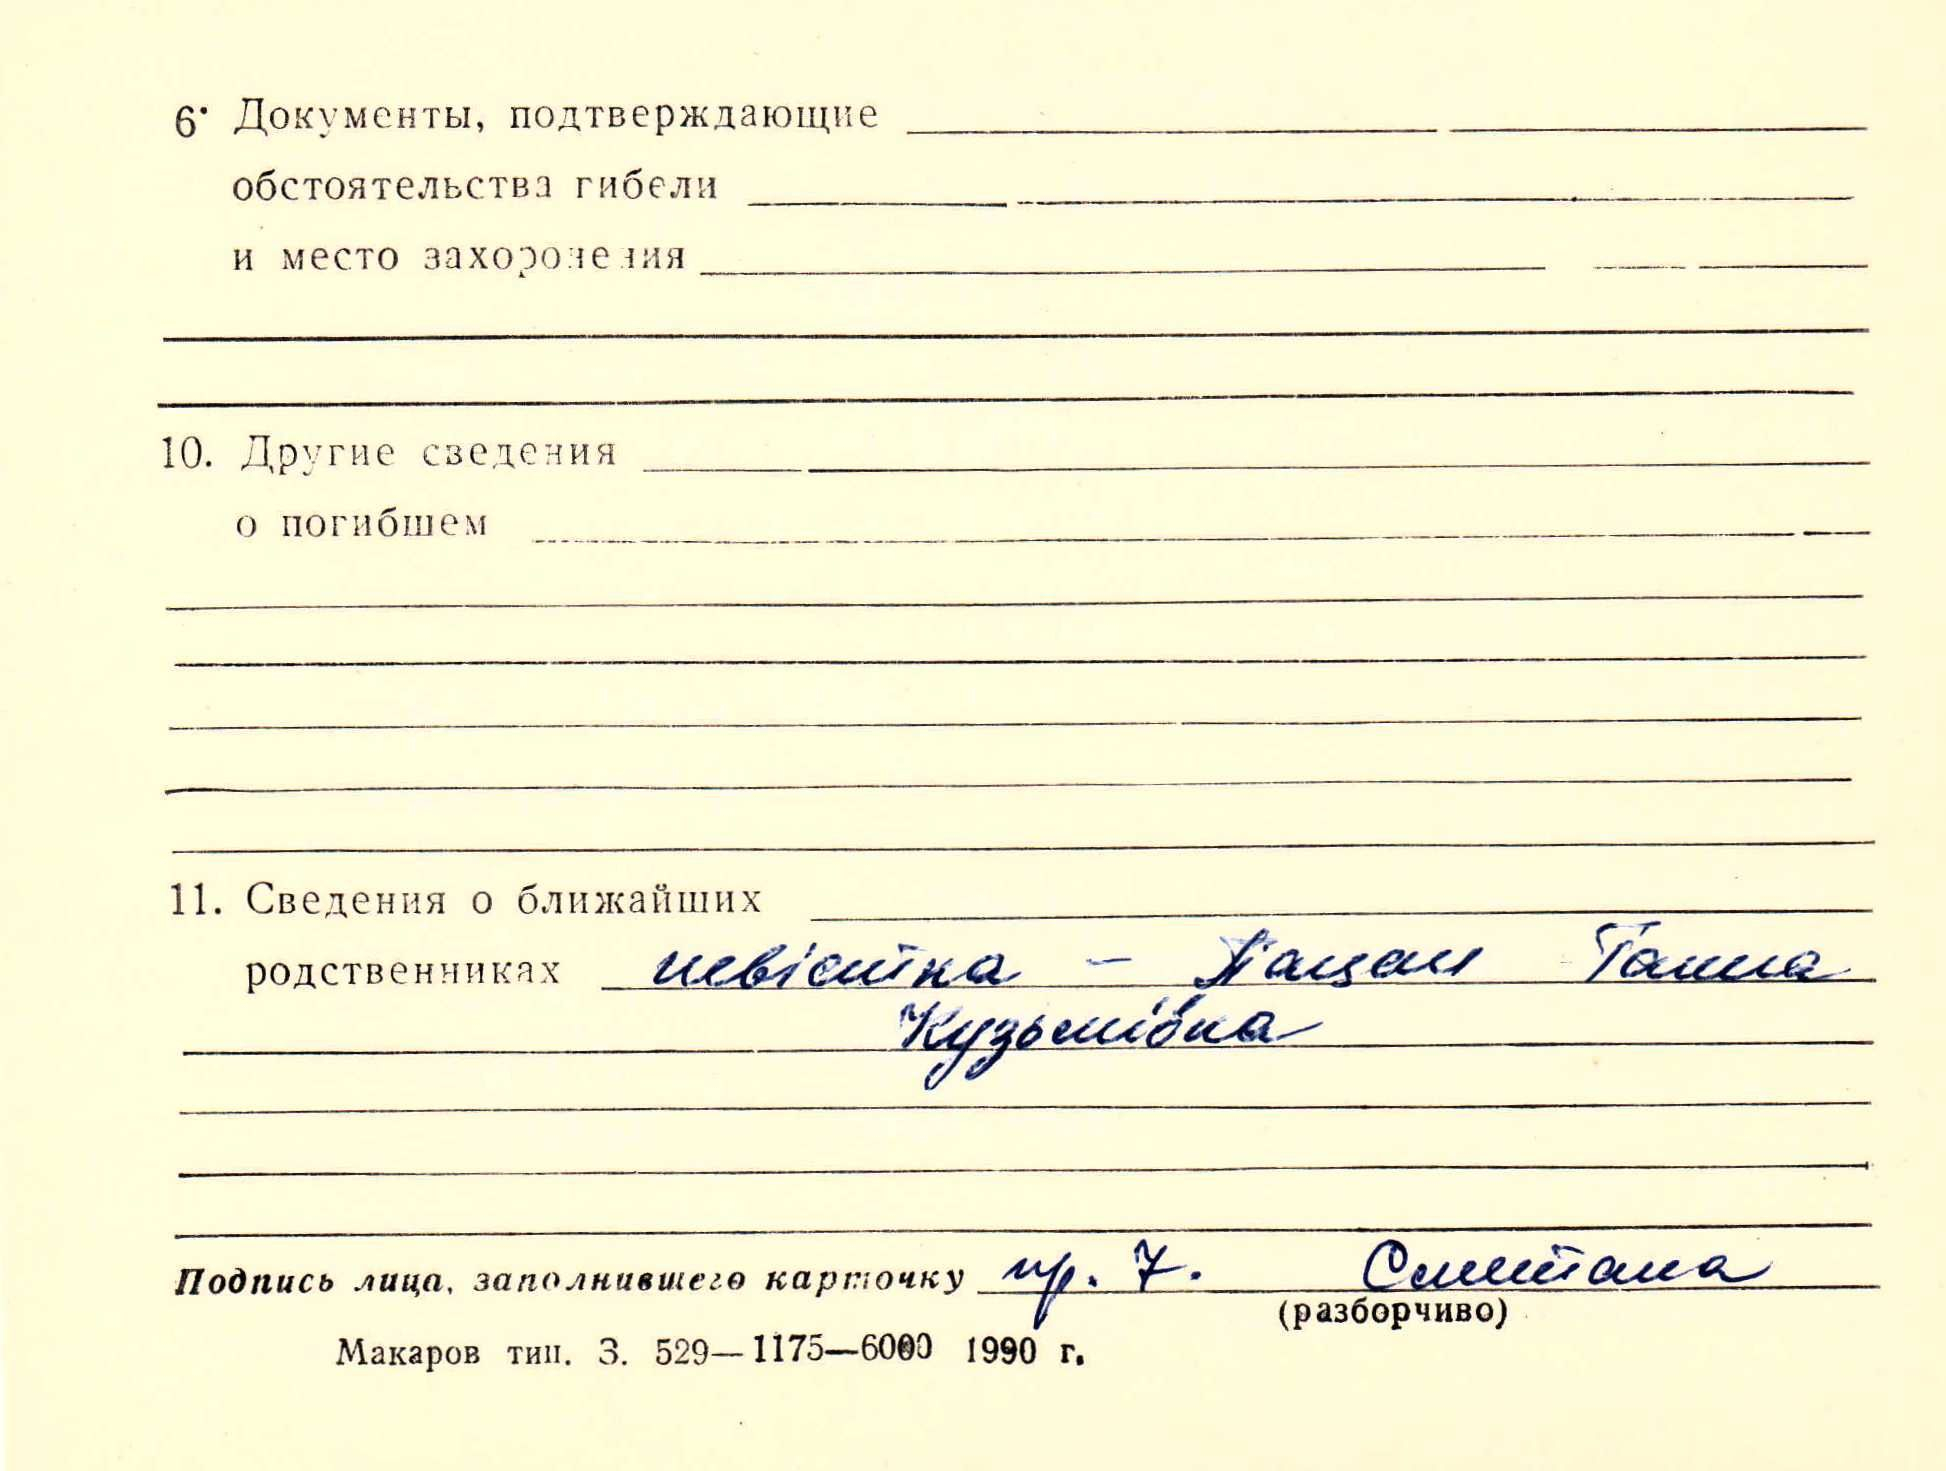 6. Документы, подтверждающие
обстоятельства гибели
и место захоронения
10. Другие сведения
о погибшем
11. Сведения о ближайших
родственниках невістка – Пацан Ганна
Кузьмівна
Подпись лица, заполнившего карточку пр. 7. Сметана
(разборчиво)
Макаров тип. З. 529—1175—6000 1990 г.